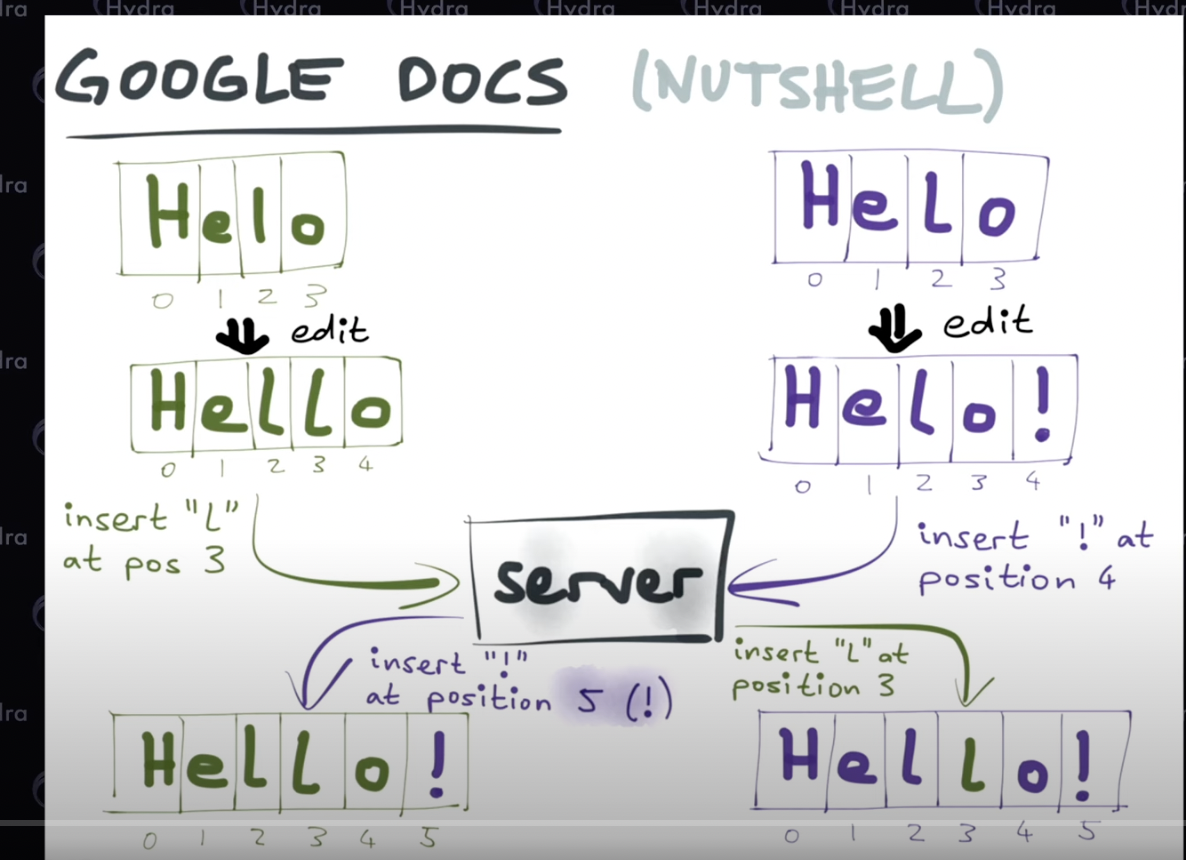 Hydra Hydra Hydra Hydra Hydra Hydra
GOOGLE DOCS (NUTSHELL)
Helo
0 1 2 3
edit
Hello
0 1 2 3 4
insert "L"
at pos 3
Helo
0 1 2 3
edit
Helo!
0 1 2 3 4
insert "!" at
position 4
server
insert "!"
at position 5 (!)
insert "L" at
position 3
Hello!
0 1 2 3 4 5
Hello!
0 1 2 3 4 5